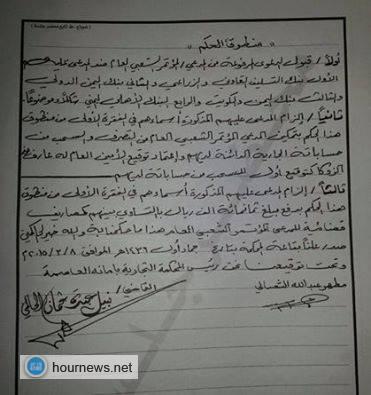 « منطوق الحكم »
أولاً / قبول الدعوى المرفوعة من المدعي / المؤتمر الشعبي العام ضد المدعى عليهم
الأول بنك التسليف التعاوني والزراعي والثاني بنك اليمن الدولي
والثالث بنك اليمن والكويت والرابع البنك الأهلي اليمني شكلاً وموضوعاً.
ثانياً / إلزام المدعى عليهم المذكورة أسماءهم في الفقرة الأولى من منطوق
هذا الحكم بتمكين المدعي المؤتمر الشعبي العام من التصرف والسحب من
حساباته الجارية الدائنة لديهم واعتماد توقيع الأمين العام له عارف
الزوكا كتوقيع أول للسحب من حساباته لديهم
ثالثاً / إلزام المدعى عليهم المذكورة أسماءهم في الفقرة الأولى من منطوق
هذا الحكم بدفع مبلغ ثمانمائة الف ريال بالتساوي بينهم كمصاريف
قضائية للمدعي المؤتمر الشعبي العام هذا ما حكمنا به والله خير الحاكمين
صدر علناً بقاعة المحكمة بتاريخ جماد أول ١٤٣٦هـ الموافق ٢٠١٥/٣/٨م
وتحت توقيعنا رئيس المحكمة التجارية بأمانة العاصمة
القاضي/
مطهر عبدالله الشمالي
hournews.net